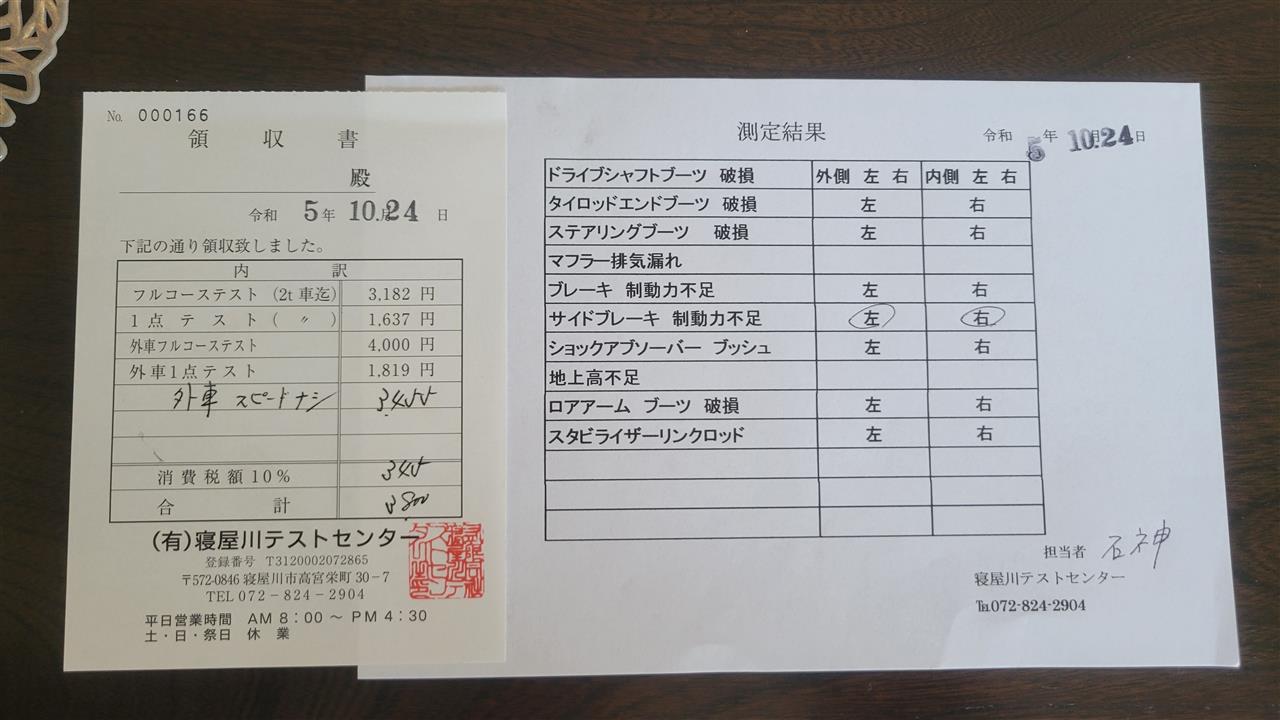 No. 000166
領収書
殿
令和 5年 10月24日
下記の通り領収致しました。
内訳
フルコーステスト (2t車迄) 3,182 円
1点テスト ( 〃 ) 1,637 円
外車フルコーステスト 4,000 円
外車1点テスト 1,819 円
外車 スピードナシ
消費税額10%
合計 3800
(有)寝屋川テストセンター
登録番号 T3120002072865
〒572-0846 寝屋川市高宮栄町30-7
TEL 072-824-2904
平日営業時間 AM 8:00 ~ PM 4:30
土・日・祭日 休業
測定結果
令和 5年 10月24日
ドライブシャフトブーツ 破損 外側 左 右 内側 左 右
タイロッドエンドブーツ 破損 左 右
ステアリングブーツ 破損 左 右
マフラー排気漏れ
ブレーキ 制動力不足 左 右
サイドブレーキ 制動力不足 左 右
ショックアブソーバー ブッシュ 左 右
地上高不足
ロアアーム ブーツ 破損 左 右
スタビライザーリンクロッド 左 右
担当者 石神
寝屋川テストセンター
℡072-824-2904